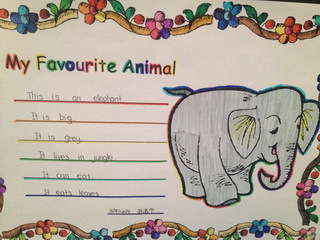 My Favourite Animal
This is an elephant
It is big
It is grey
It lives in jungle
It can eat
It eats leaves